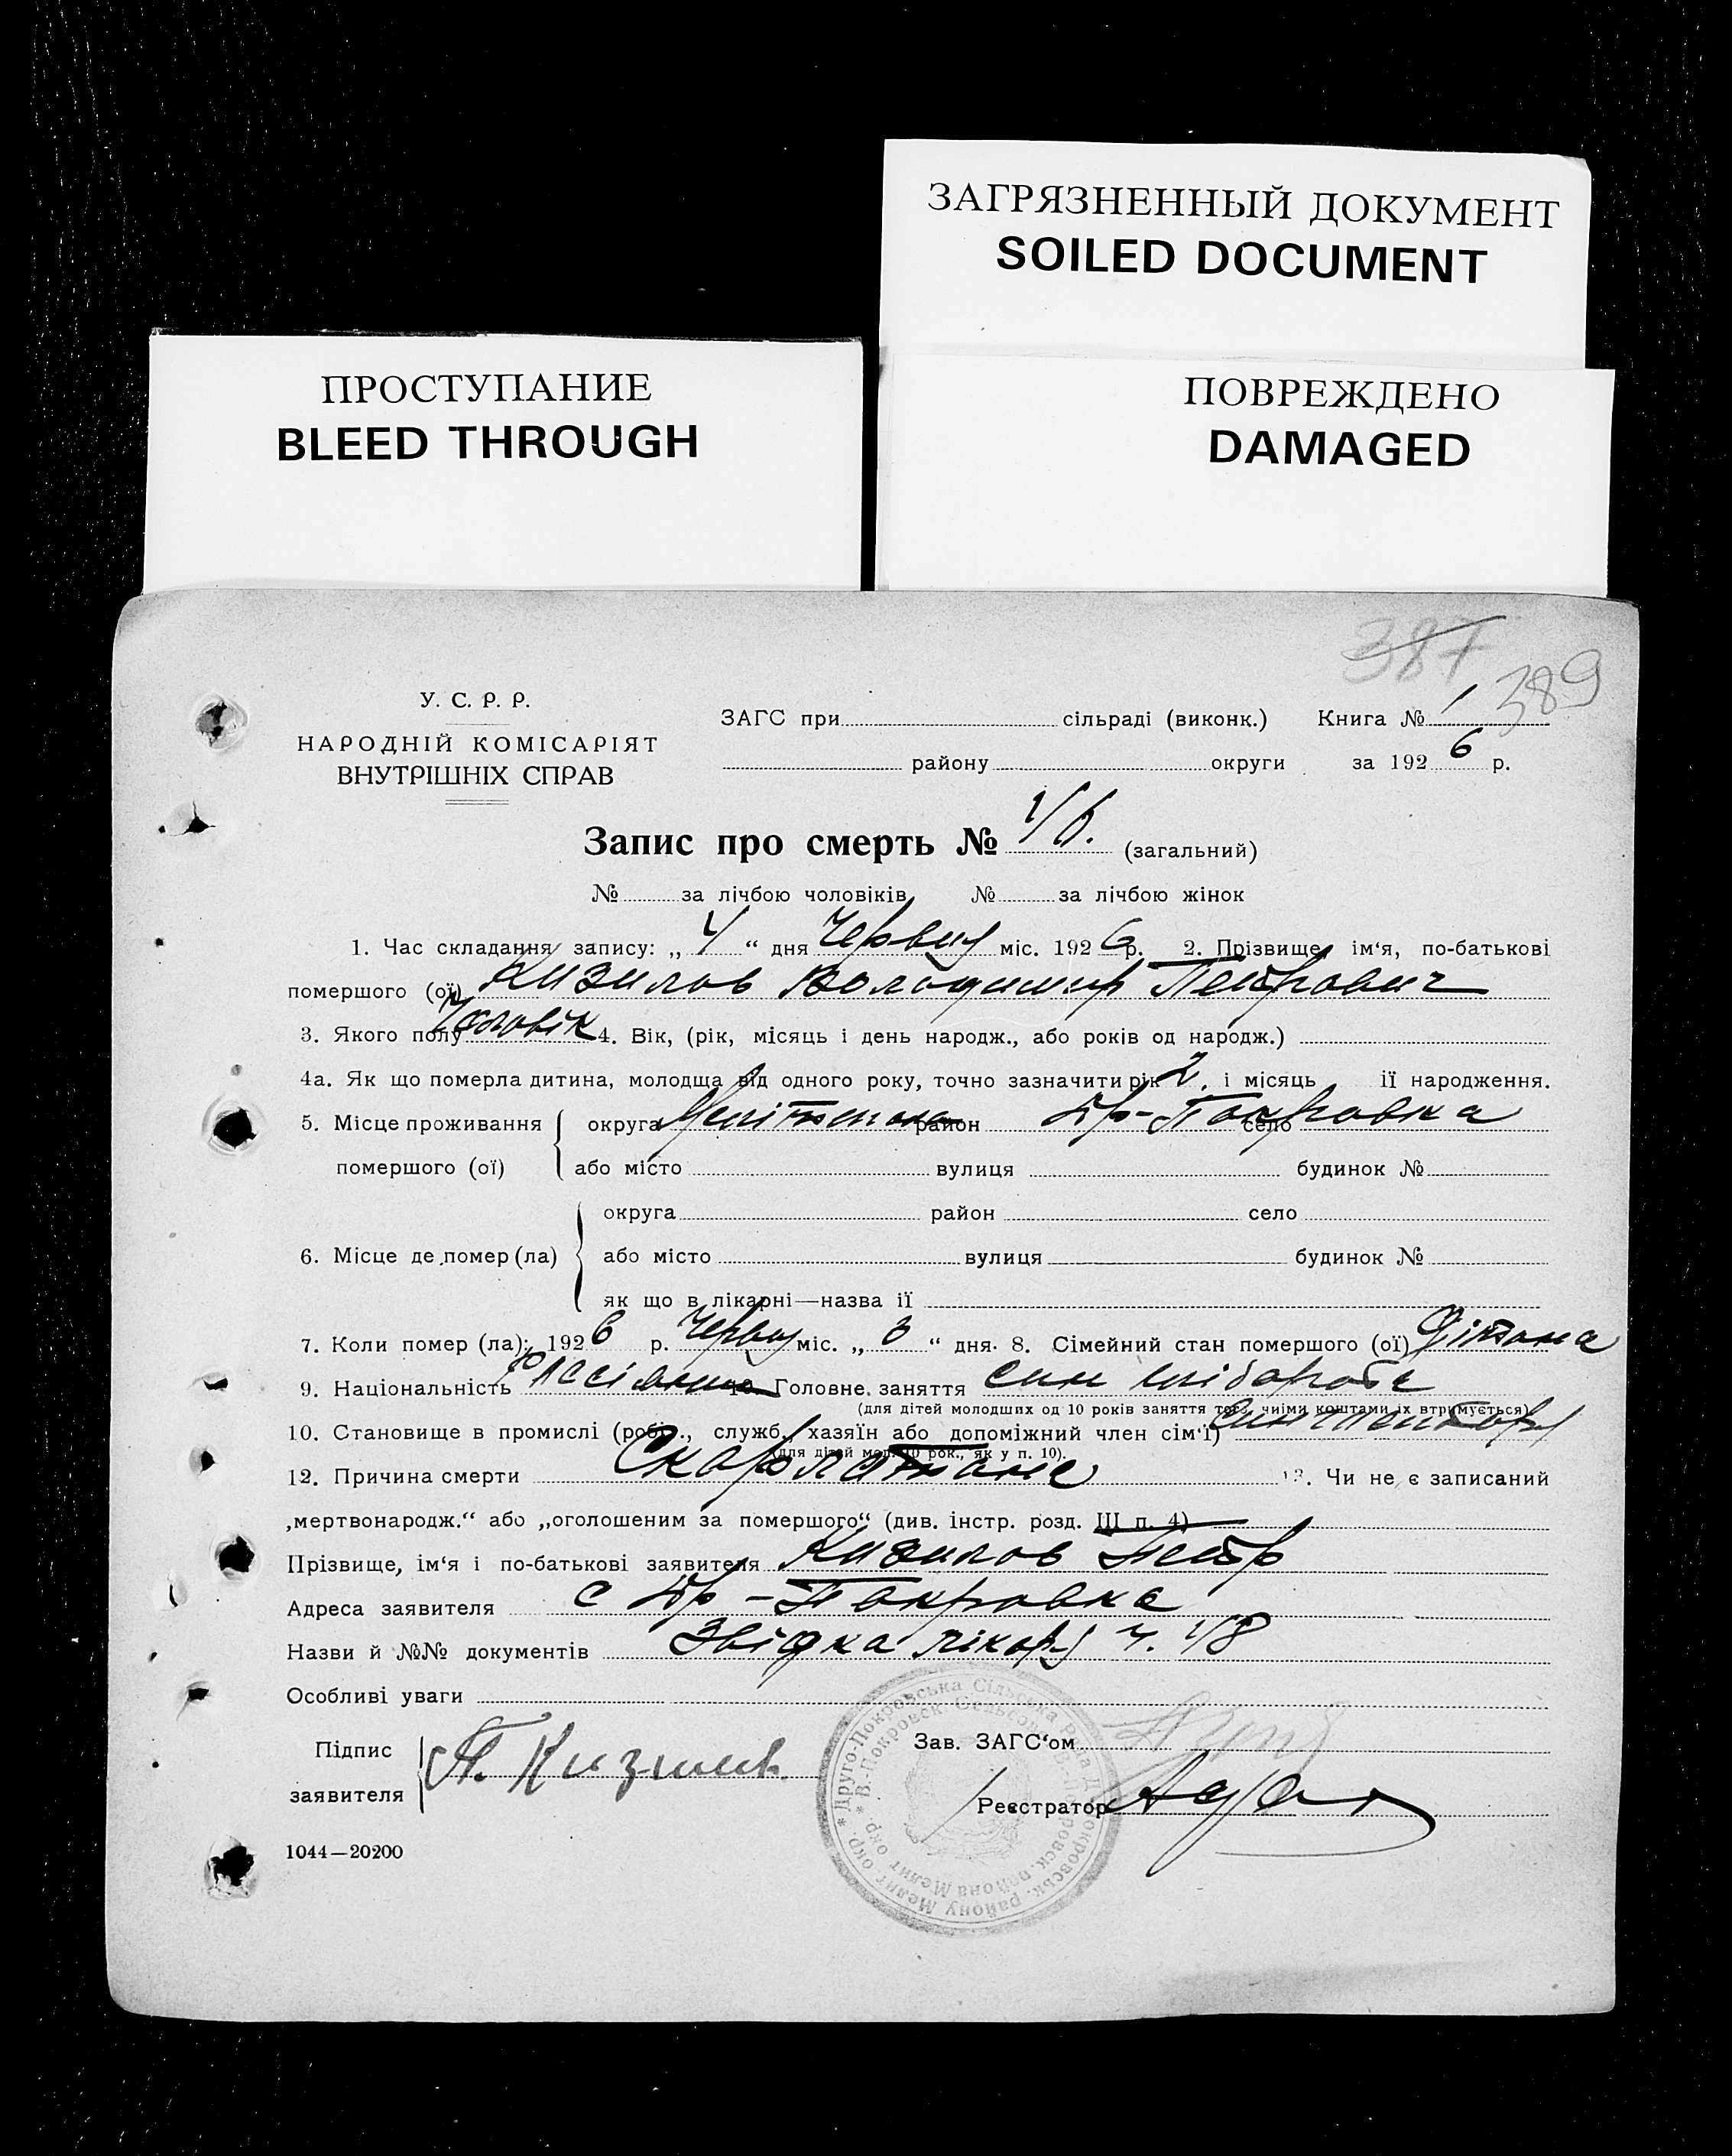 ЗАГРЯЗНЕННЫЙ ДОКУМЕНТ
SOILED DOCUMENT
ПРОСТУПАНИЕ
BLEED THROUGH
ПОВРЕЖДЕНО
DAMAGED
387
389
У. С. Р. Р.
НАРОДНІЙ КОМІСАРІЯТ
ВНУТРІШНІХ СПРАВ
ЗАГС при сільраді (виконк.) Книга № 1
району округи за 1926 р.
Запис про смерть № (загальний)
№ за лічбою чоловіків № за лічбою жінок
1. Час складання запису: „ 4 “ дня Червня міс. 1926 р. 2. Прізвище, ім‘я, по-батькові
помершого (ої) Кизилов Володимир Петрович
3. Якого полу Чоловік 4. Вік, (рік, місяць і день народж., або років од народж.)
4а. Як що померла дитина, молодща від одного року, точно зазначити рік 2. і місяць її народження.
5. Місце проживання округа район Др-Покровка село
помершого (ої) або місто вулиця будинок №
округа район село
6. Місце де помер (ла) або місто вулиця будинок №
як що в лікарні—назва її
7. Коли помер (ла): 1926 р. Червня міс. „ 3 “ дня. 8. Сімейний стан помершого (ої) Дітина
9. Національність 10. Головне заняття син хлібароба
(для дітей молодших од 10 років заняття того, чиїми коштами їх втримується)
10. Становище в промислі (робіт., служб., хазяїн або допоміжний член сім‘ї)
(для дітей мол. 10 рок., як у п. 10).
12. Причина смерти Скорлатина 13. Чи не є записаний
„мертвонародж.“ або „оголошеним за помершого“ (див. інстр. розд. III п. 4)
Прізвище, ім‘я і по-батькові заявителя Кизилов Петр
Адреса заявителя с Др-Покровка
Назви й №№ документів Звідка лікаря ч. 18
Особливі уваги
Підпис
заявителя П. Кизилов
Зав. ЗАГС‘ом
Реєстратор
Друго-Покровська Сільська Рада Др. Покровськ. району Мелит окр.
В.-Покровск. Сельсовет Покровск. района Мелит окр.
1044—20200